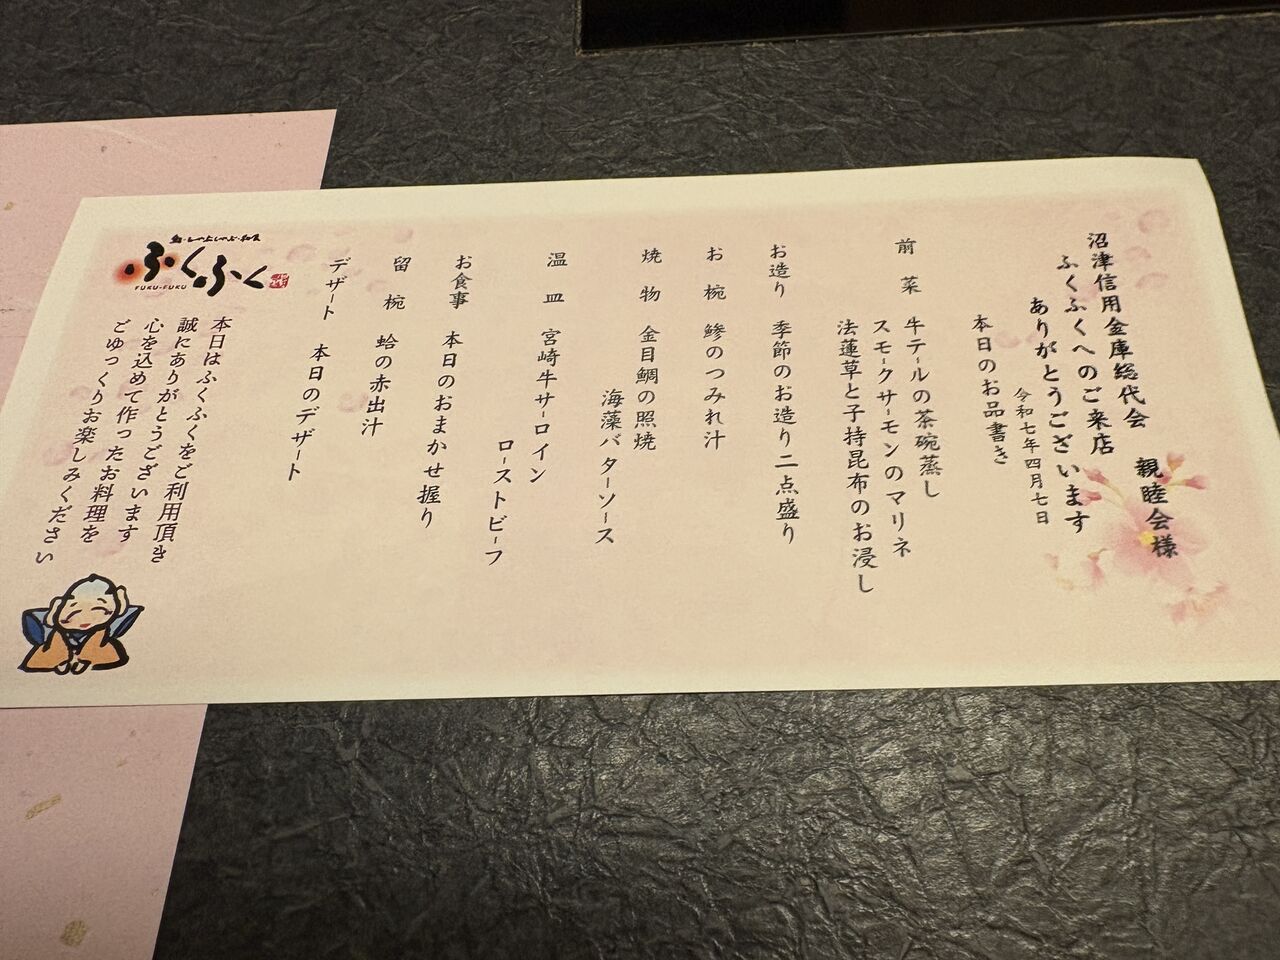 沼津信用金庫総代会 親睦会様
ふくふくへのご来店
ありがとうございます
令和七年四月七日
本日のお品書き
前菜 牛テールの茶碗蒸し
スモークサーモンのマリネ
法蓮草と子持昆布のお浸し
お造り 季節のお造り二点盛り
お椀 鰺のつみれ汁
焼物 金目鯛の照焼
海藻バターソース
温皿 宮崎牛サーロイン
ローストビーフ
お食事 本日のおまかせ握り
留椀 蛤の赤出汁
デザート 本日のデザート
鮨・しゃぶしゃぶ・和食
ふくふく
FUKU-FUKU
本日はふくふくをご利用頂き
誠にありがとうございます
心を込めて作ったお料理を
ごゆっくりお楽しみください